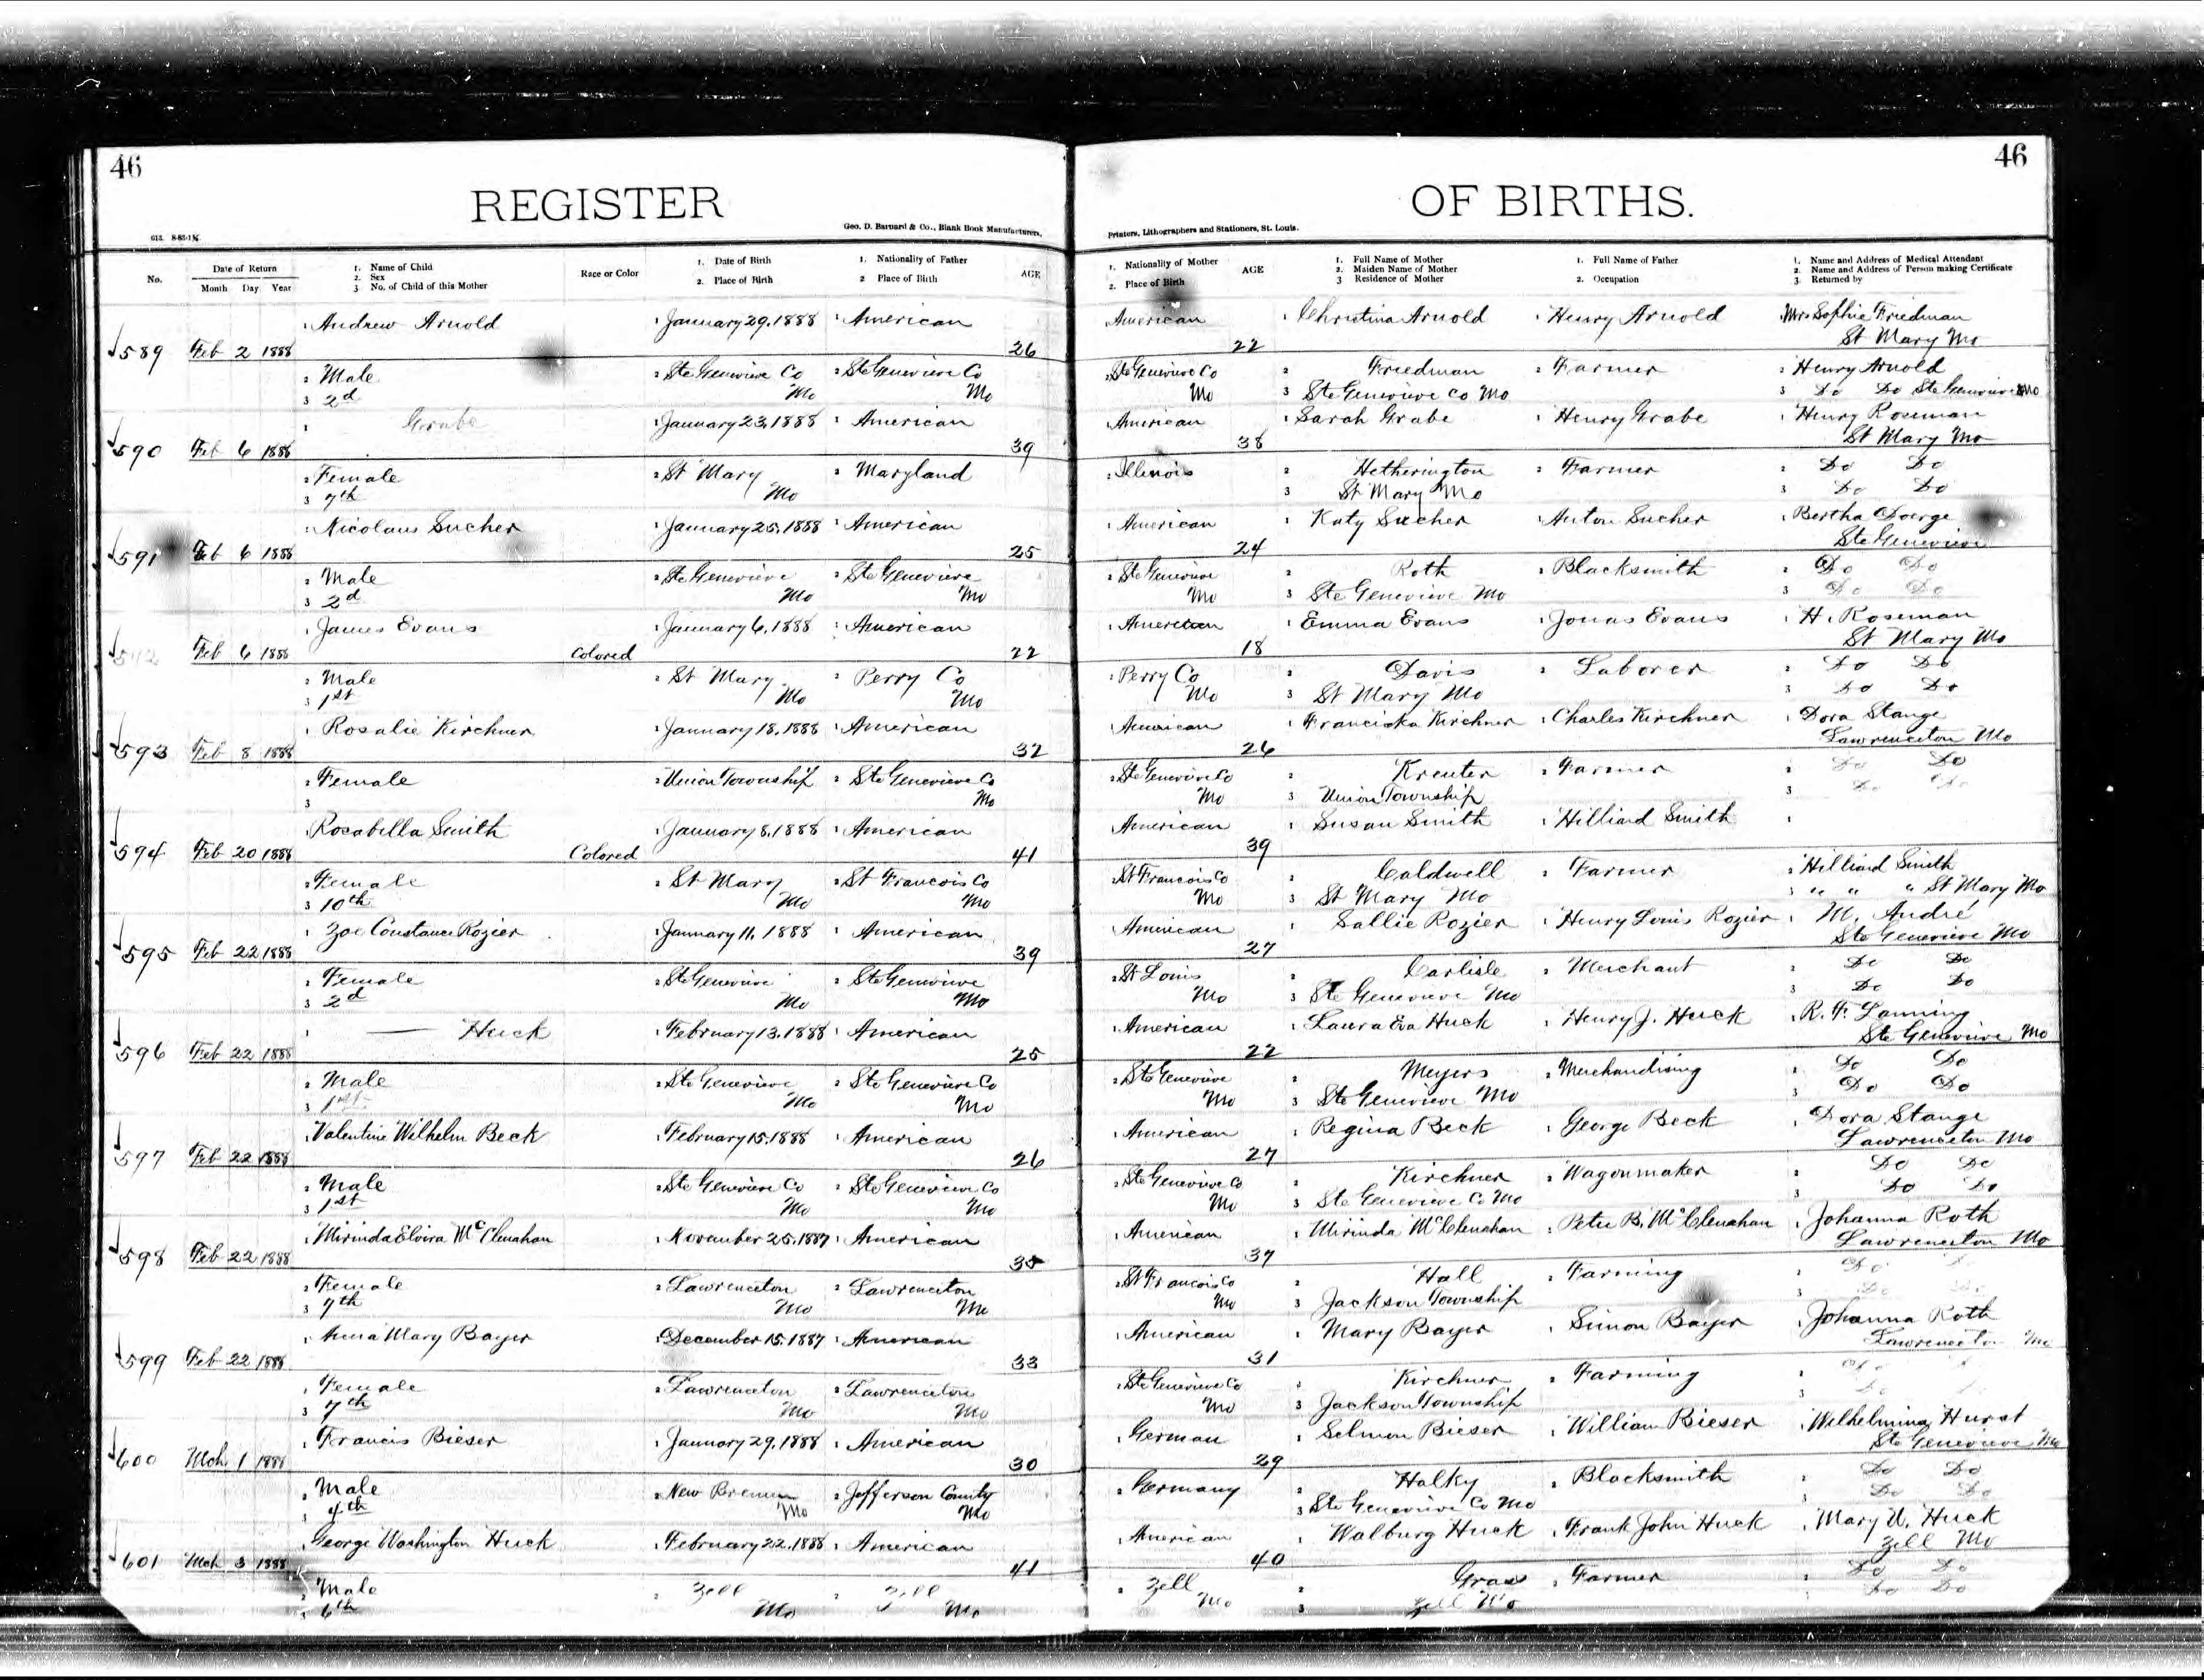 46
46
REGISTER
OF BIRTHS.
613. 8-83-1½
Geo. D. Barnard & Co., Blank Book Manufacturers,
Printers, Lithographers and Stationers, St. Louis.
No.
Date of Return
Month Day Year
1. Name of Child
2. Sex
3. No. of Child of this Mother
Race or Color
1. Date of Birth
2. Place of Birth
1. Nationality of Father
2 Place of Birth
AGE
1. Nationality of Mother
2. Place of Birth
AGE
1. Full Name of Mother
2. Maiden Name of Mother
3 Residence of Mother
1. Full Name of Father
2. Occupation
1. Name and Address of Medical Attendant
2. Name and Address of Person making Certificate
3. Returned by
1 Andrew Arnold 1 January 29, 1888 1 American American 1 Christina Arnold 1 Henry Arnold Mrs Sophie Friedman
589 Feb 2 1888 26 22 St Mary Mo
2 Male 2 Ste Genevieve Co 2 Ste Genevieve Co 2 Ste Genevieve Co 2 Friedman 2 Farmer 2 Henry Arnold
3 2d Mo Mo Mo 3 Ste Genevieve Co Mo 3 Do Do Ste Genevieve Mo
1 Grabe 1 January 23, 1888 1 American American 1 Sarah Grabe 1 Henry Grabe 1 Henry Roseman
590 Feb 6 1888 39 38 St Mary Mo
2 Female 2 St Mary 2 Maryland 2 Illinois 2 Hetherington 2 Farmer 2 Do Do
3 7th Mo 3 St Mary Mo 3 Do Do
1 Nicolaus Sucher 1 January 25, 1888 1 American 1 American 1 Katy Sucher 1 Anton Sucher 1 Bertha Doerge
591 Feb 6 1888 25 24 Ste Genevieve
2 Male 2 Ste Genevieve 2 Ste Genevieve 2 Ste Genevieve 2 Roth 2 Blacksmith 2 Do Do
3 2d Mo Mo Mo 3 Ste Genevieve Mo 3 Do Do
1 James Evans 1 January 6, 1888 1 American 1 American 1 Emma Evans 1 Jonas Evans 1 H. Roseman
592 Feb 6 1888 Colored 22 18 St Mary Mo
2 Male 2 St Mary 2 Perry Co 2 Perry Co 2 Davis 2 Laborer 2 Do Do
3 1st Mo Mo Mo 3 St Mary Mo 3 Do Do
1 Rosalie Kirchner 1 January 18, 1888 1 American 1 American 1 Franciska Kirchner 1 Charles Kirchner 1 Dora Stange
593 Feb 8 1888 32 26 Lawrenceton Mo
2 Female 2 Union Township 2 Ste Genevieve Co 2 Ste Genevieve Co 2 Kreuter 2 Farmer 2 Do Do
3 Mo Mo 3 Union Township 3 Do Do
1 Rosabella Smith 1 January 8, 1888 1 American 1 American 1 Susan Smith 1 Hilliard Smith 1
594 Feb 20 1888 Colored 41 39
2 Female 2 St Mary 2 St Francois Co 2 St Francois Co 2 Caldwell 2 Farmer 2 Hilliard Smith
3 10th Mo Mo Mo 3 St Mary Mo 3 " " " St Mary Mo
1 Zoe Constance Rozier 1 January 11, 1888 1 American 1 American 1 Sallie Rozier 1 Henry Louis Rozier 1 M. André
595 Feb 22 1888 39 27 Ste Genevieve Mo
2 Female 2 Ste Genevieve 2 Ste Genevieve 2 St Louis 2 Carlisle 2 Merchant 2 Do Do
3 2d Mo Mo Mo 3 Ste Genevieve Mo 3 Do Do
1 — Huck 1 February 13, 1888 1 American 1 American 1 Laura Eva Huck 1 Henry J. Huck 1 R. F. Lanning
596 Feb 22 1888 25 22 Ste Genevieve Mo
2 Male 2 Ste Genevieve 2 Ste Genevieve Co 2 Ste Genevieve 2 Meyers 2 Merchandising 2 Do Do
3 1st Mo Mo Mo 3 Ste Genevieve Mo 3 Do Do
1 Valentine Wilhelm Beck 1 February 15, 1888 1 American 1 American 1 Regina Beck 1 George Beck 1 Dora Stange
597 Feb 22 1888 26 27 Lawrenceton Mo
2 Male 2 Ste Genevieve Co 2 Ste Genevieve Co 2 Ste Genevieve Co 2 Kirchner 2 Wagonmaker 2 Do Do
3 1st Mo Mo Mo 3 Ste Genevieve Co Mo 3 Do Do
1 Mirinda Elvira McClenahan 1 November 25, 1887 1 American 1 American 1 Mirinda McClenahan 1 Peter B. McClenahan 1 Johanna Roth
598 Feb 22 1888 35 37 Lawrenceton Mo
2 Female 2 Lawrenceton 2 Lawrenceton 2 St Francois Co 2 Hall 2 Farming 2 Do
3 7th Mo Mo Mo 3 Jackson Township 3 Do Do
1 Anna Mary Bayer 1 December 15, 1887 1 American 1 American 1 Mary Bayer 1 Simon Bayer 1 Johanna Roth
599 Feb 22 1888 33 31 Lawrenceton Mo
2 Female 2 Lawrenceton 2 Lawrenceton 2 Ste Genevieve Co 2 Kirchner 2 Farming 2
3 7th Mo Mo Mo 3 Jackson Township 3 Do
1 Francis Bieser 1 January 29, 1888 1 American 1 German 1 Selmon Bieser 1 William Bieser 1 Wilhelmina Hurst
600 Mch 1 1888 30 29 Ste Genevieve Mo
2 Male 2 New Bremen 2 Jefferson County 2 Germany 2 Halky 2 Blacksmith 2 Do Do
3 4th Mo Mo 3 Ste Genevieve Co Mo 3 Do Do
1 George Washington Huck 1 February 22, 1888 1 American 1 American 1 Walburg Huck 1 Frank John Huck 1 Mary U. Huck
601 Mch 3 1888 41 40 Zell Mo
2 Male 2 Zell 2 Zell 2 Zell 2 Grass 2 Farmer 2 Do Do
3 6th Mo Mo Mo 3 Zell Mo Do Do